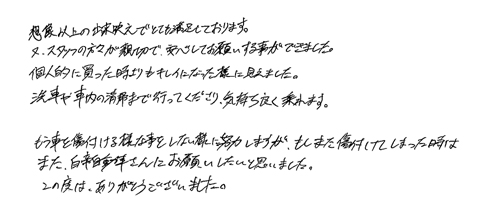 想像以上の出来映えでとても満足しております。
又、スタッフの方々が親切で、安心してお願いする事ができました。
個人的に買った時よりもキレイになった様に見えました。
洗車や車内の清掃まで行ってくださり、気持ち良く乗れます。
もう車を傷付ける様な事をしない様に努力しますが、もしまた傷付けてしまった時は
また、さんにお願いしたいと思いました。
この度は、ありがとうございました。